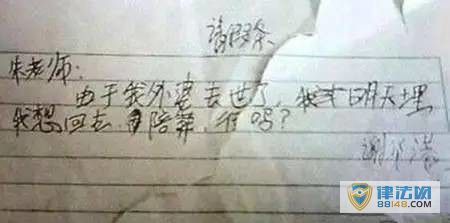 请假条
朱老师:
由于我外婆去世了,我 明天埋
我想回去 陪葬,行吗?
谢
律法网
88148.COM